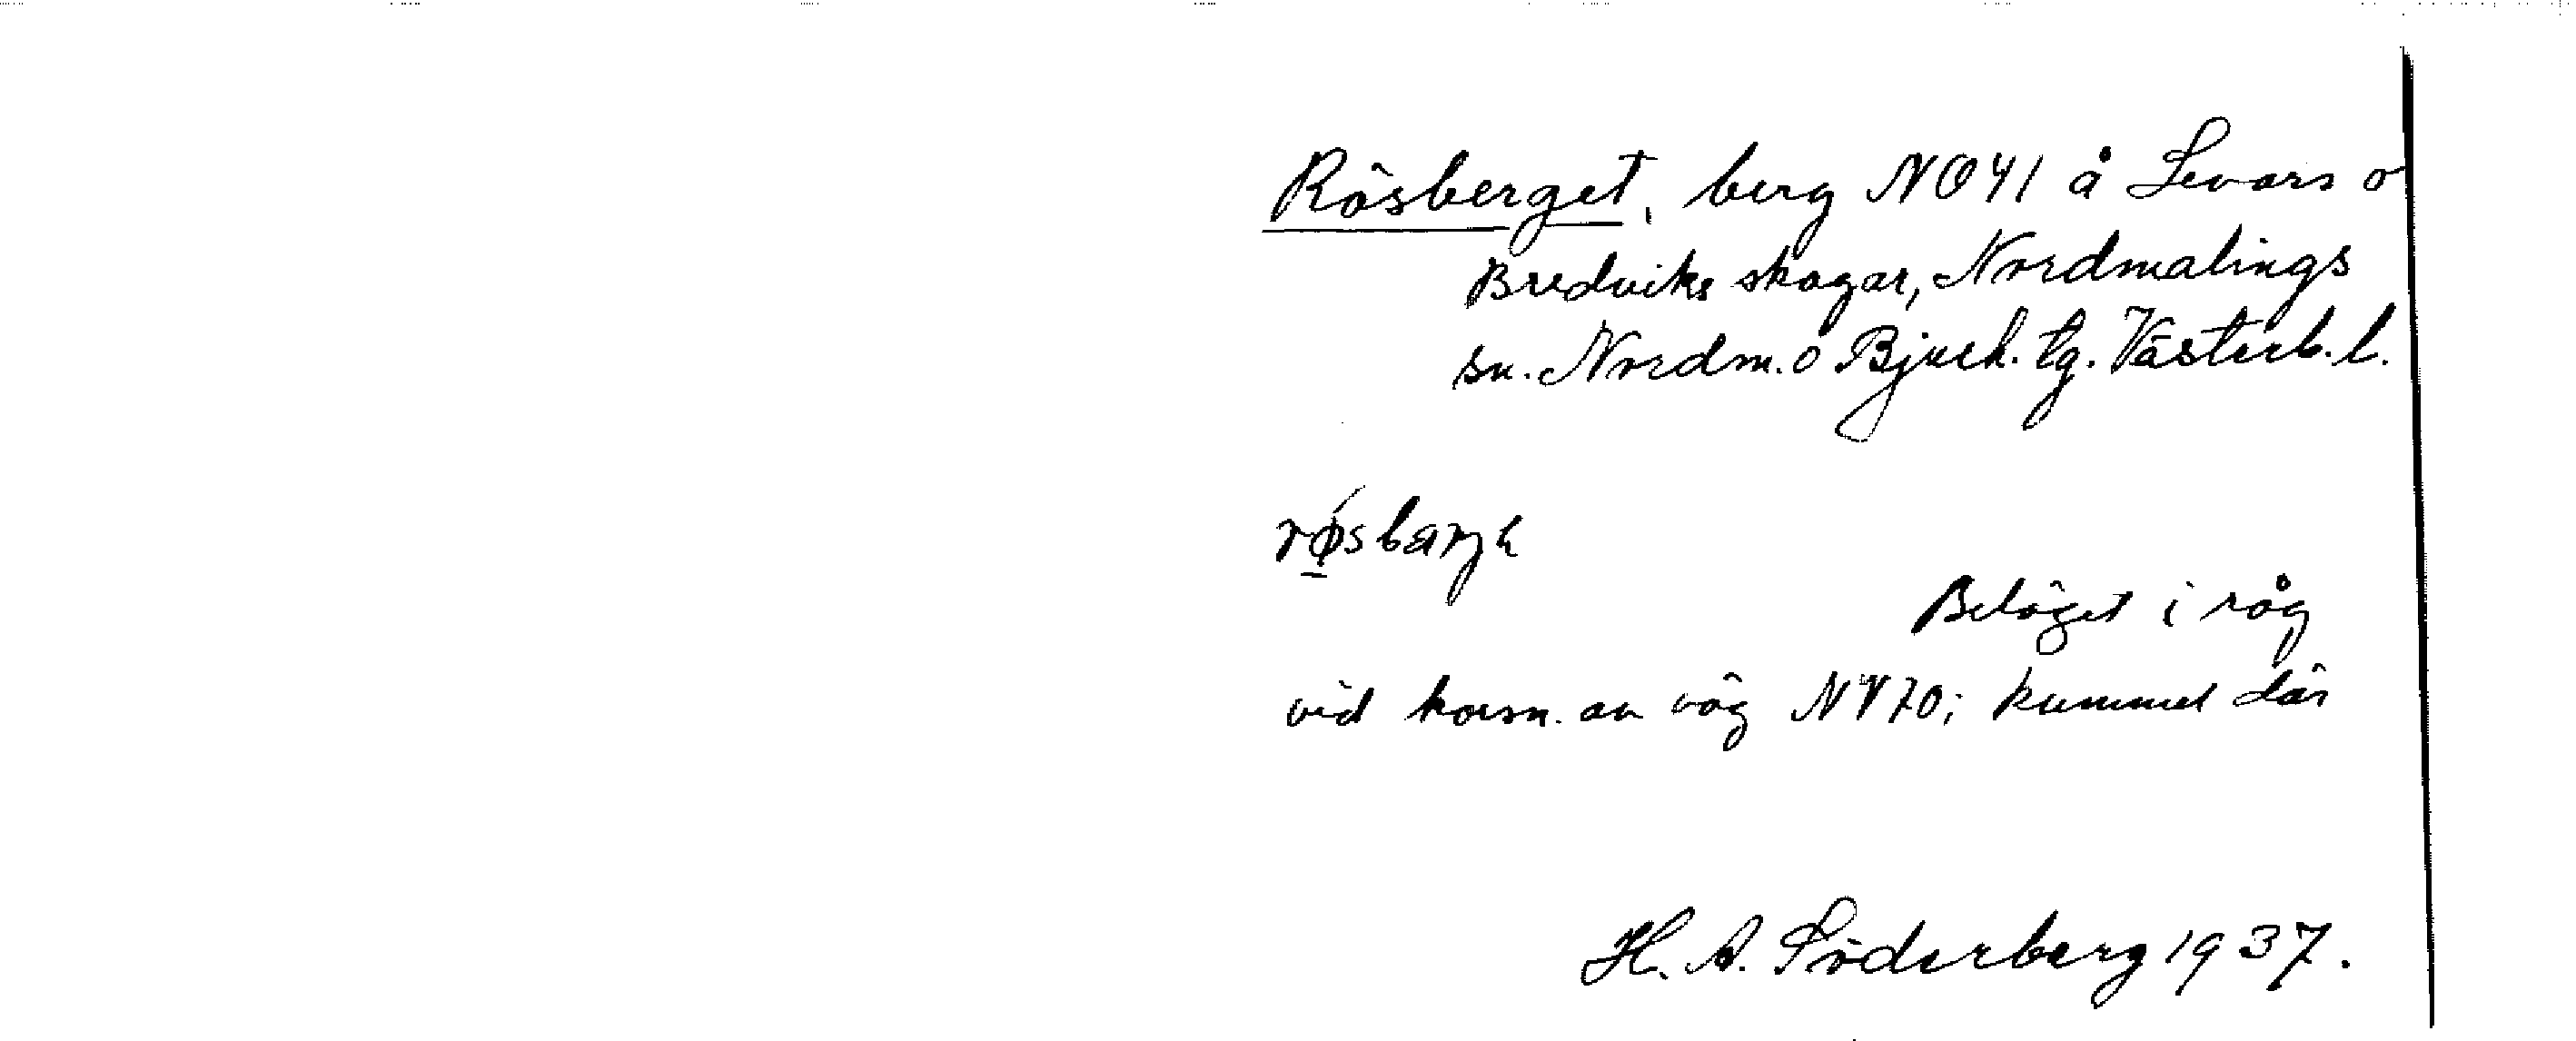 Rösberget, berg NO41 å Levars o
Bredviks skogar, Nordmalings
sn. Nordm. o Bjurh. tg. Västerb. l.
røsbarjh
Beläget i råg
vid korsn. av väg NV70; kummel där
H. A. Söderberg 1937.